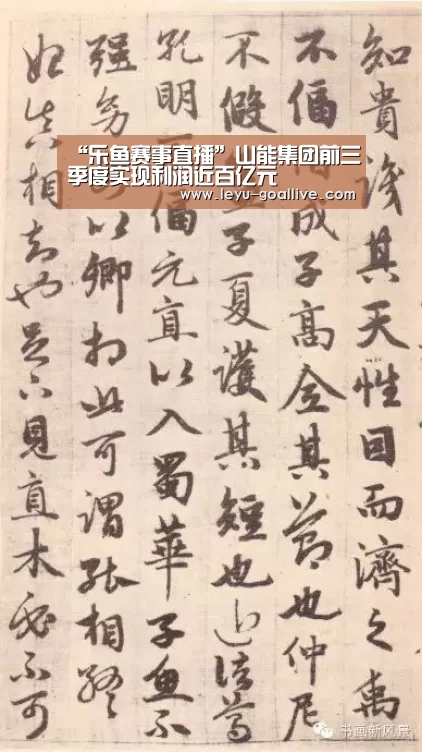 “乐鱼赛事直播”山能集团前三
季度实现利润近百亿元
www.leyu-goallive.com
知貴識其天性因而濟之禹
不偪成子高全其節也仲尼
不假子夏護其短也近諸葛
孔明偪元直以入蜀華子魚不
強幼以卿相此可謂能相終
始真相知也足下見直木必不可
书画新风景